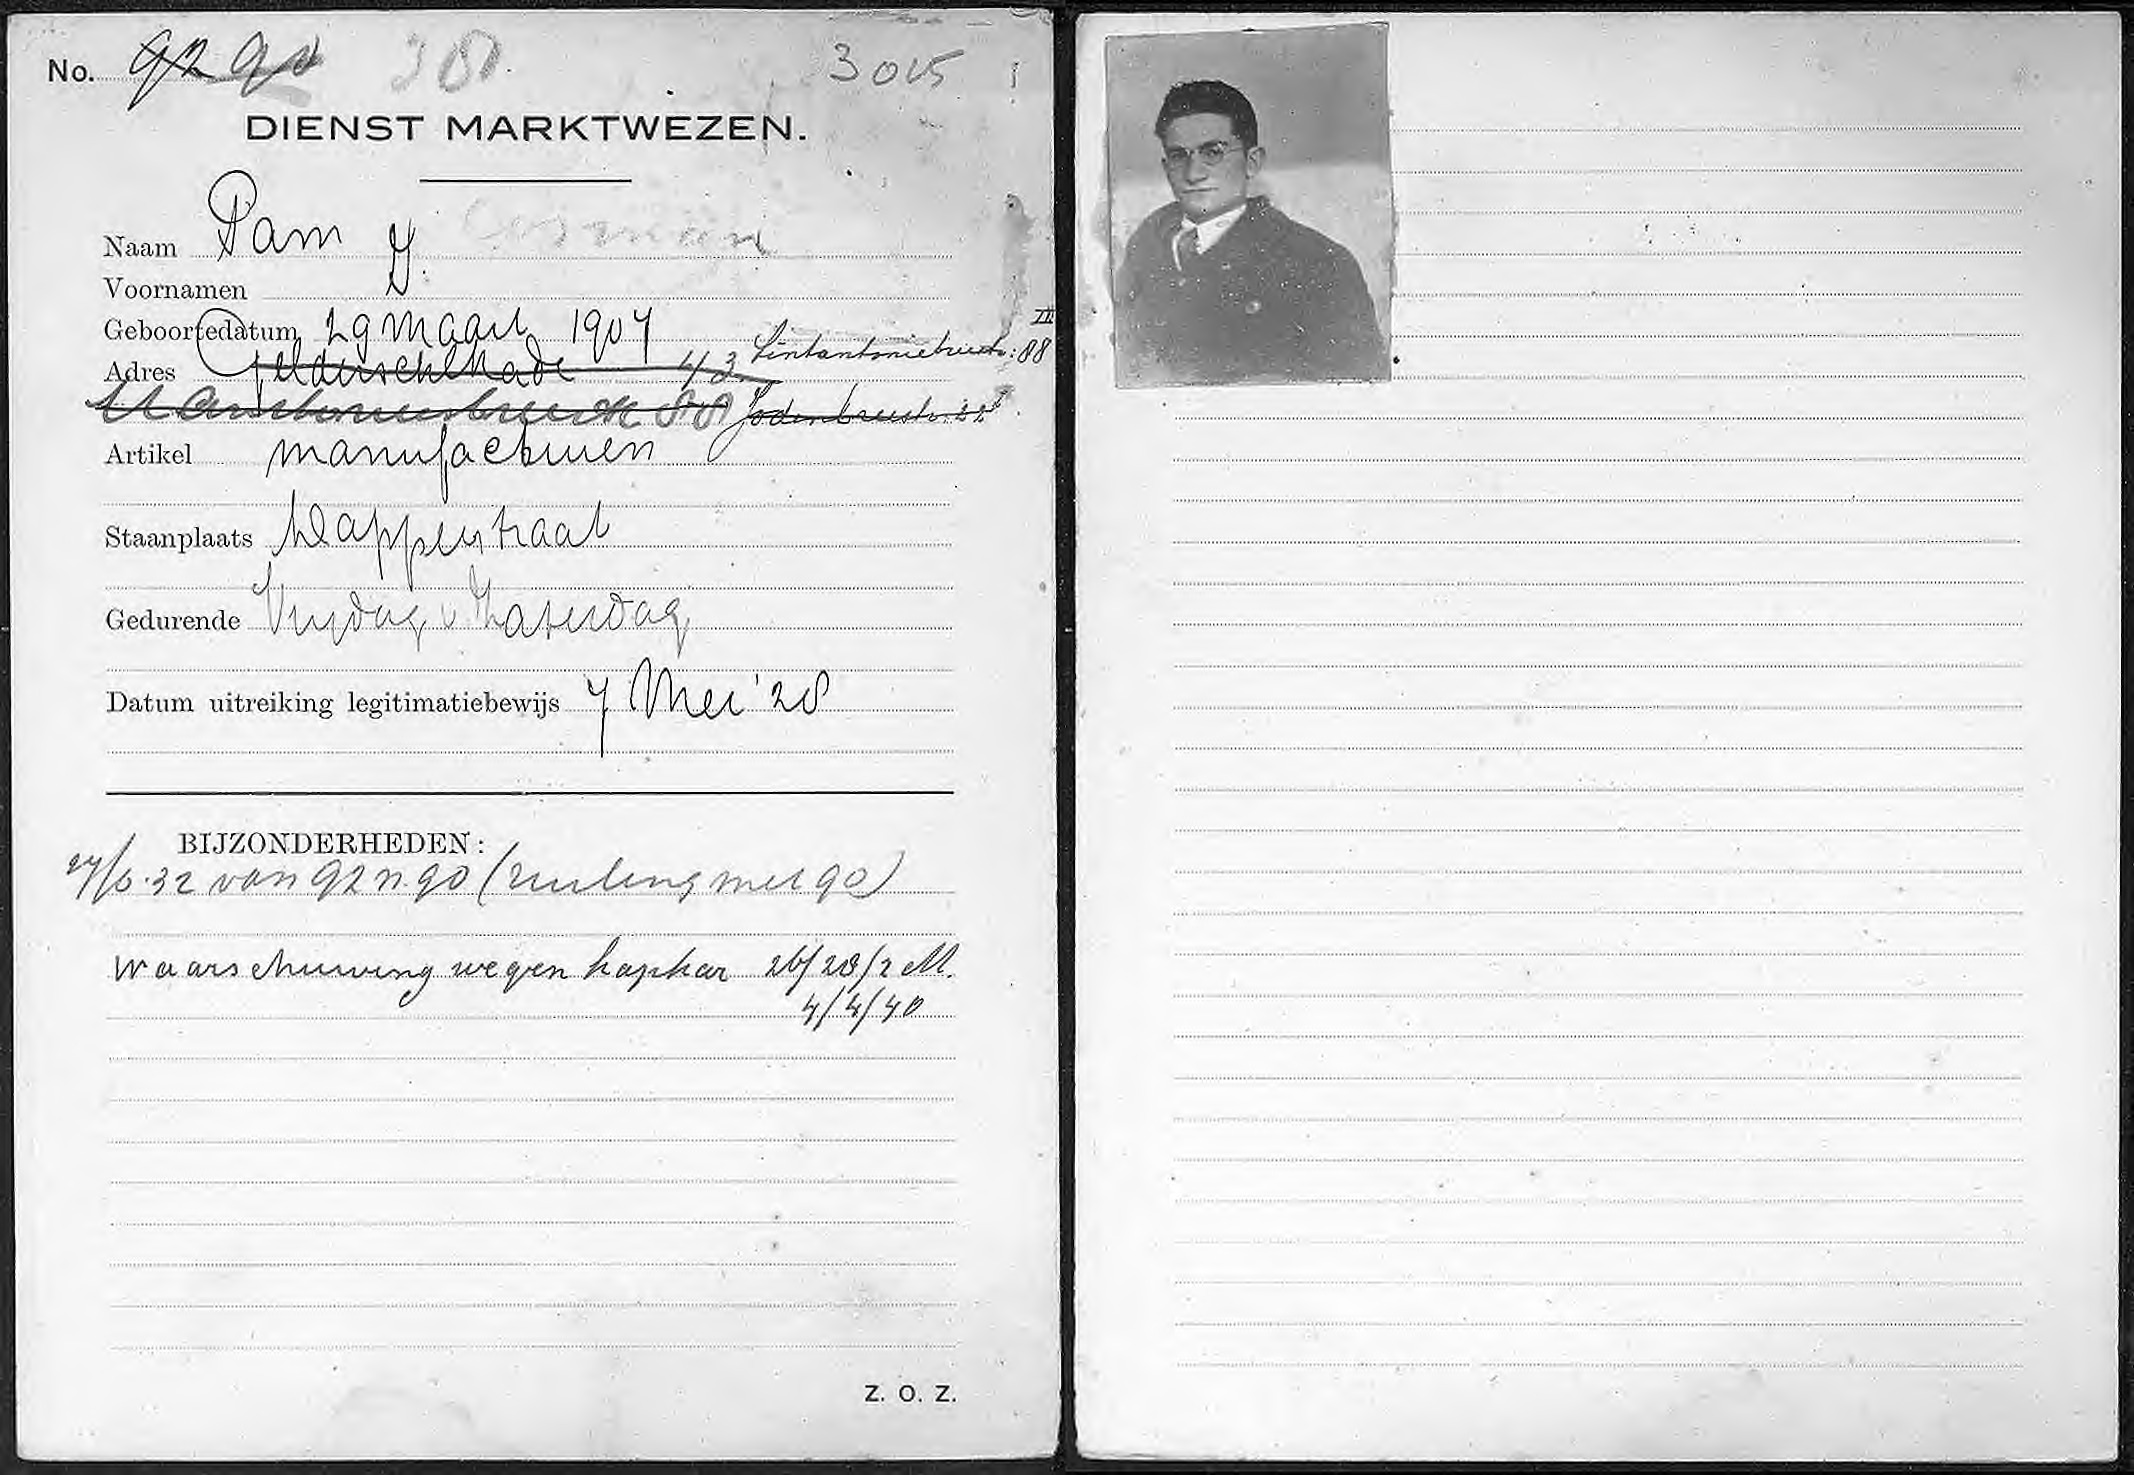 No. 92 90 38 3015
DIENST MARKTWEZEN.
Naam Pam J.
Voornamen
Geboortedatum 29 Maart 1907 III
Adres Gelderschekade 43 Sintantoniebreestr: 88
St Antoniesbreestr 88 Jodenbreestr: 22 I
Artikel manufacturen
Staanplaats Dapperstraat
Gedurende Vrijdag Zaterdag
Datum uitreiking legitimatiebewijs 7 Mei '28
BIJZONDERHEDEN:
27/6.32 van 92 n. 90 (ruiling met 90)
waarschuwing wegen kapkar 26/28/2 M.
4/4/40
Z. O. Z.